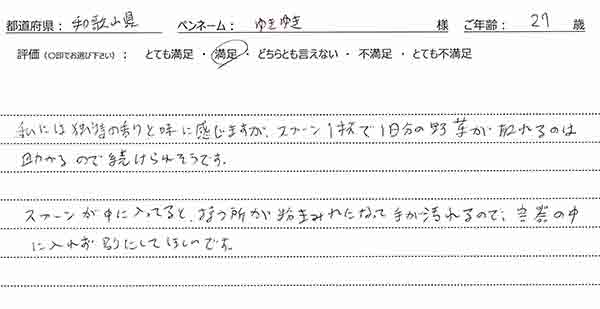 都道府県： 和歌山県 ペンネーム： ゆきゆき 様 ご年齢： 27 歳
評価（○印でお選び下さい）： とても満足 ・ 満足 ・ どちらとも言えない ・ 不満足 ・ とても不満足
私には独特の香りと味に感じますが、スプーン1杯で1日分の野草が取れるのは
助かるので続けられそうです。
スプーンが中に入ってると、持つ所が粉まみれになって手が汚れるので、容器の中
に入れず別にしてほしいです。